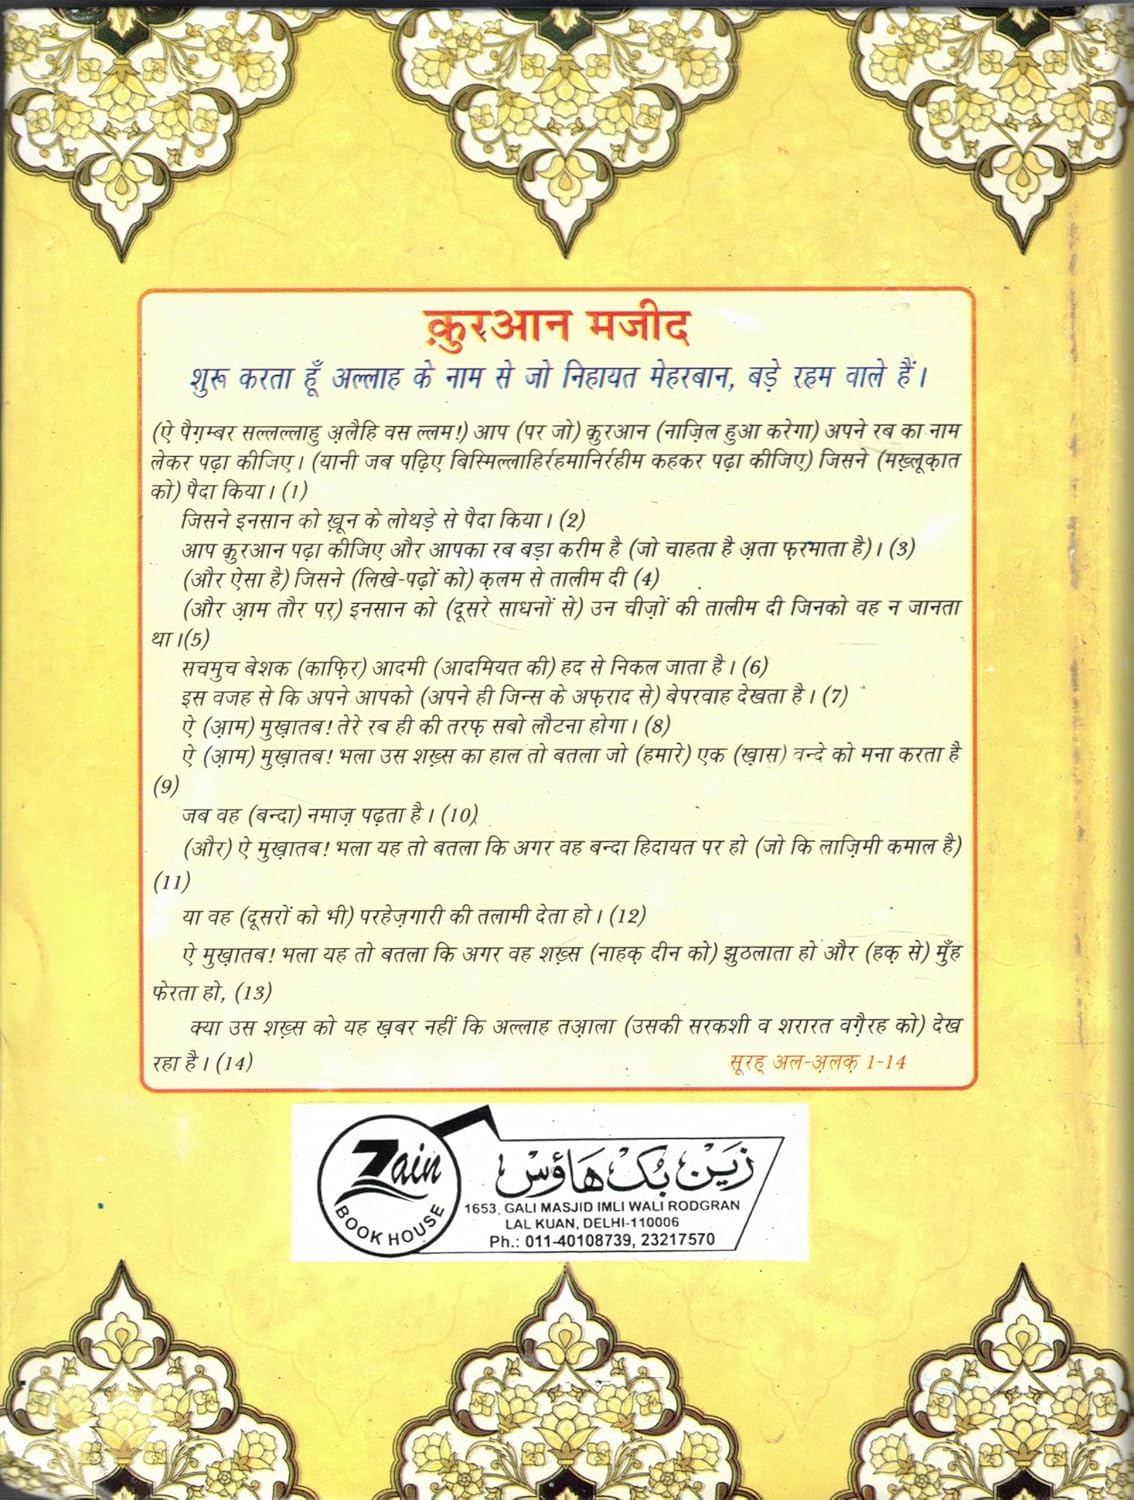 क़ुरआन मजीद
शुरू करता हूँ अल्लाह के नाम से जो निहायत मेहरबान, बड़े रहम वाले हैं।
(ऐ पैग़म्बर सल्लल्लाहु अ़लैहि वस ल्लम!) आप (पर जो) क़ुरआन (नाज़िल हुआ करेगा) अपने रब का नाम
लेकर पढ़ा कीजिए। (यानी जब पढ़िए बिस्मिल्लाहिर्रहमानिर्रहीम कहकर पढ़ा कीजिए) जिसने (मख़्लूक़ात
को) पैदा किया। (1)
जिसने इनसान को ख़ून के लोथड़े से पैदा किया। (2)
आप क़ुरआन पढ़ा कीजिए और आपका रब बड़ा करीम है (जो चाहता है अ़ता फ़रमाता है)। (3)
(और ऐसा है) जिसने (लिखे-पढ़ों को) क़लम से तालीम दी (4)
(और आ़म तौर पर) इनसान को (दूसरे साधनों से) उन चीज़ों की तालीम दी जिनको वह न जानता
था।(5)
सचमुच बेशक (काफ़िर) आदमी (आदमियत की) हद से निकल जाता है। (6)
इस वजह से कि अपने आपको (अपने ही जिन्स के अफ़राद से) बेपरवाह देखता है। (7)
ऐ (आ़म) मुख़ातब! तेरे रब ही की तरफ़ सबो लौटना होगा। (8)
ऐ (आ़म) मुख़ातब! भला उस शख़्स का हाल तो बतला जो (हमारे) एक (ख़ास) बन्दे को मना करता है
(9)
जब वह (बन्दा) नमाज़ पढ़ता है। (10)
(और) ऐ मुख़ातब! भला यह तो बतला कि अगर वह बन्दा हिदायत पर हो (जो कि लाज़िमी कमाल है)
(11)
या वह (दूसरों को भी) परहेज़गारी की तलामी देता हो। (12)
ऐ मुख़ातब! भला यह तो बतला कि अगर वह शख़्स (नाहक़ दीन को) झुठलाता हो और (हक़ से) मुँह
फेरता हो, (13)
क्या उस शख़्स को यह ख़बर नहीं कि अल्लाह तआ़ला (उसकी सरकशी व शरारत वग़ैरह को) देख
रहा है। (14)
सूरह् अल-अ़लक़ 1-14
Zain
BOOK HOUSE
زین بک ہاؤس
1653, GALI MASJID IMLI WALI RODGRAN
LAL KUAN, DELHI-110006
Ph.: 011-40108739, 23217570